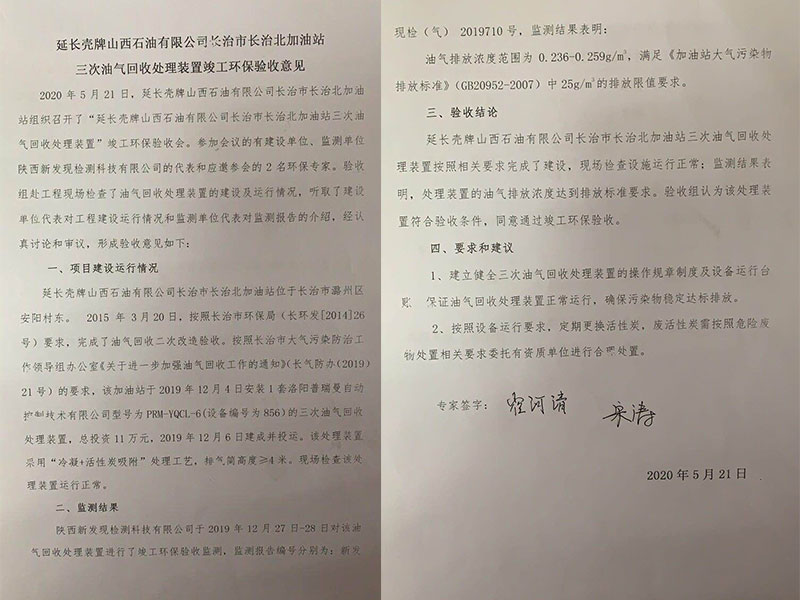 延长壳牌山西石油有限公司长治市长治北加油站
三次油气回收处理装置竣工环保验收意见
2020 年 5 月 21 日，延长壳牌山西石油有限公司长治市长治北加油
站组织召开了“延长壳牌山西石油有限公司长治市长治北加油站三次油
气回收处理装置”竣工环保验收会。参加会议的有建设单位、监测单位
陕西新发现检测科技有限公司的代表和应邀参会的 2 名环保专家。验收
组赴工程现场检查了油气回收处理装置的建设及运行情况，听取了建设
单位代表对工程建设运行情况和监测单位代表对监测报告的介绍，经认
真讨论和审议，形成验收意见如下：
一、项目建设运行情况
延长壳牌山西石油有限公司长治市长治北加油站位于长治市潞州区
安阳村东。 2015 年 3 月 20 日，按照长治市环保局（长环发[2014]26
号）要求，完成了油气回收二次改造验收。按照长治市大气污染防治工
作领导组办公室《关于进一步加强油气回收工作的通知》（长气防办(2019)
21 号）的要求，该加油站于 2019 年 12 月 4 日安装 1 套洛阳普瑞曼自动
控制技术有限公司型号为 PRM-YQCL-6(设备编号为 856）的三次油气回收
处理装置，总投资 11 万元，2019 年 12 月 6 日建成并投运。该处理装置
采用“冷凝+活性炭吸附”处理工艺，排气筒高度≥4 米。现场检查该处
理装置运行正常。
二、监测结果
陕西新发现检测科技有限公司于 2019 年 12 月 27 日-28 日对该油
气回收处理装置进行了竣工环保验收监测，监测报告编号分别为：新发
现检（气） 2019710 号，监测结果表明：
油气排放浓度范围为 0.236-0.259g/m³，满足《加油站大气污染物
排放标准》（GB20952-2007）中 25g/m³的排放限值要求。
三、验收结论
延长壳牌山西石油有限公司长治市长治北加油站三次油气回收处
理装置按照相关要求完成了建设，现场检查设施运行正常；监测结果表
明，处理装置的油气排放浓度达到排放标准要求。验收组认为该处理装
置符合验收条件，同意通过竣工环保验收。
四、要求和建议
1、建立健全三次油气回收处理装置的操作规章制度及设备运行台
账 保证油气回收处理装置正常运行，确保污染物稳定达标排放。
2、按照设备运行要求，定期更换活性炭，废活性炭需按照危险废
物处置相关要求委托有资质单位进行合理处置。
专家签字：
2020 年 5 月 21 日